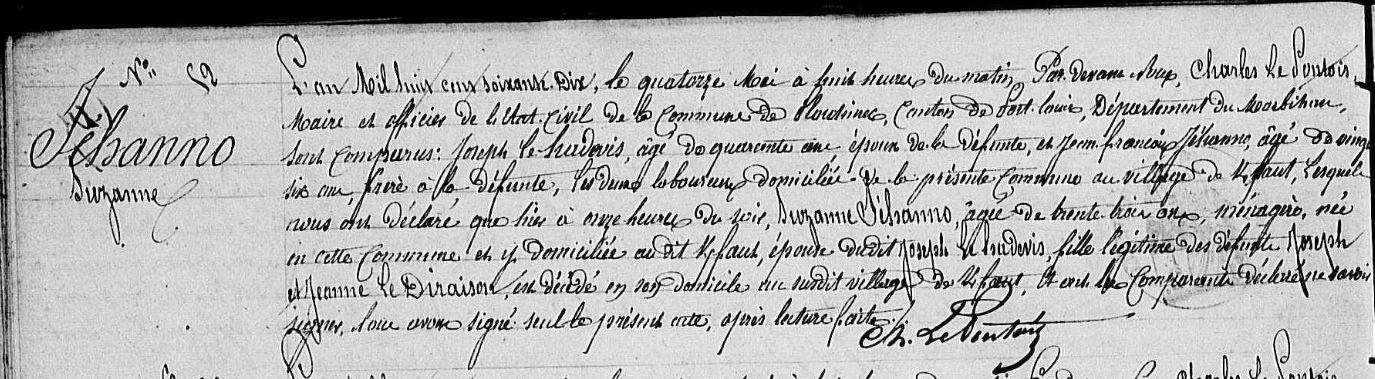 N° 52
Jéhanno
Suzanne
L'an Mil huit cent soixante Dix, le quatorze Mai à huit heures du matin, Par devant Nous, Charles Le Pontois,
Maire et officier de l'Etat-civil de la Commune de Plouhinec, Canton de Port-louis, Département du Morbihan,
sont comparus: Joseph le hadevis, âgé de quarante ans époux de la défunte, et Jean françois Jéhanno, âgé de vingt
six ans, frère à la défunte, les deux laboureurs domiciliés de la présente Commune au village de, Lesquels
nous ont déclaré que hier à onze heures du soir, Suzanne Jéhanno, âgée de trente trois ans, ménagère, née
en cette Commune et y domiciliée au dit, épouse du dit Joseph le hadevis, fille légitime des défunts Joseph
et Jeanne Le Diraison, est décédé en son domicile au susdit village de, Et ont les Comparants déclaré ne savoir
signer, Nous avons signé seul le présent acte, après lecture faite.
Ch. Le Pontois
Charles Le Pontois